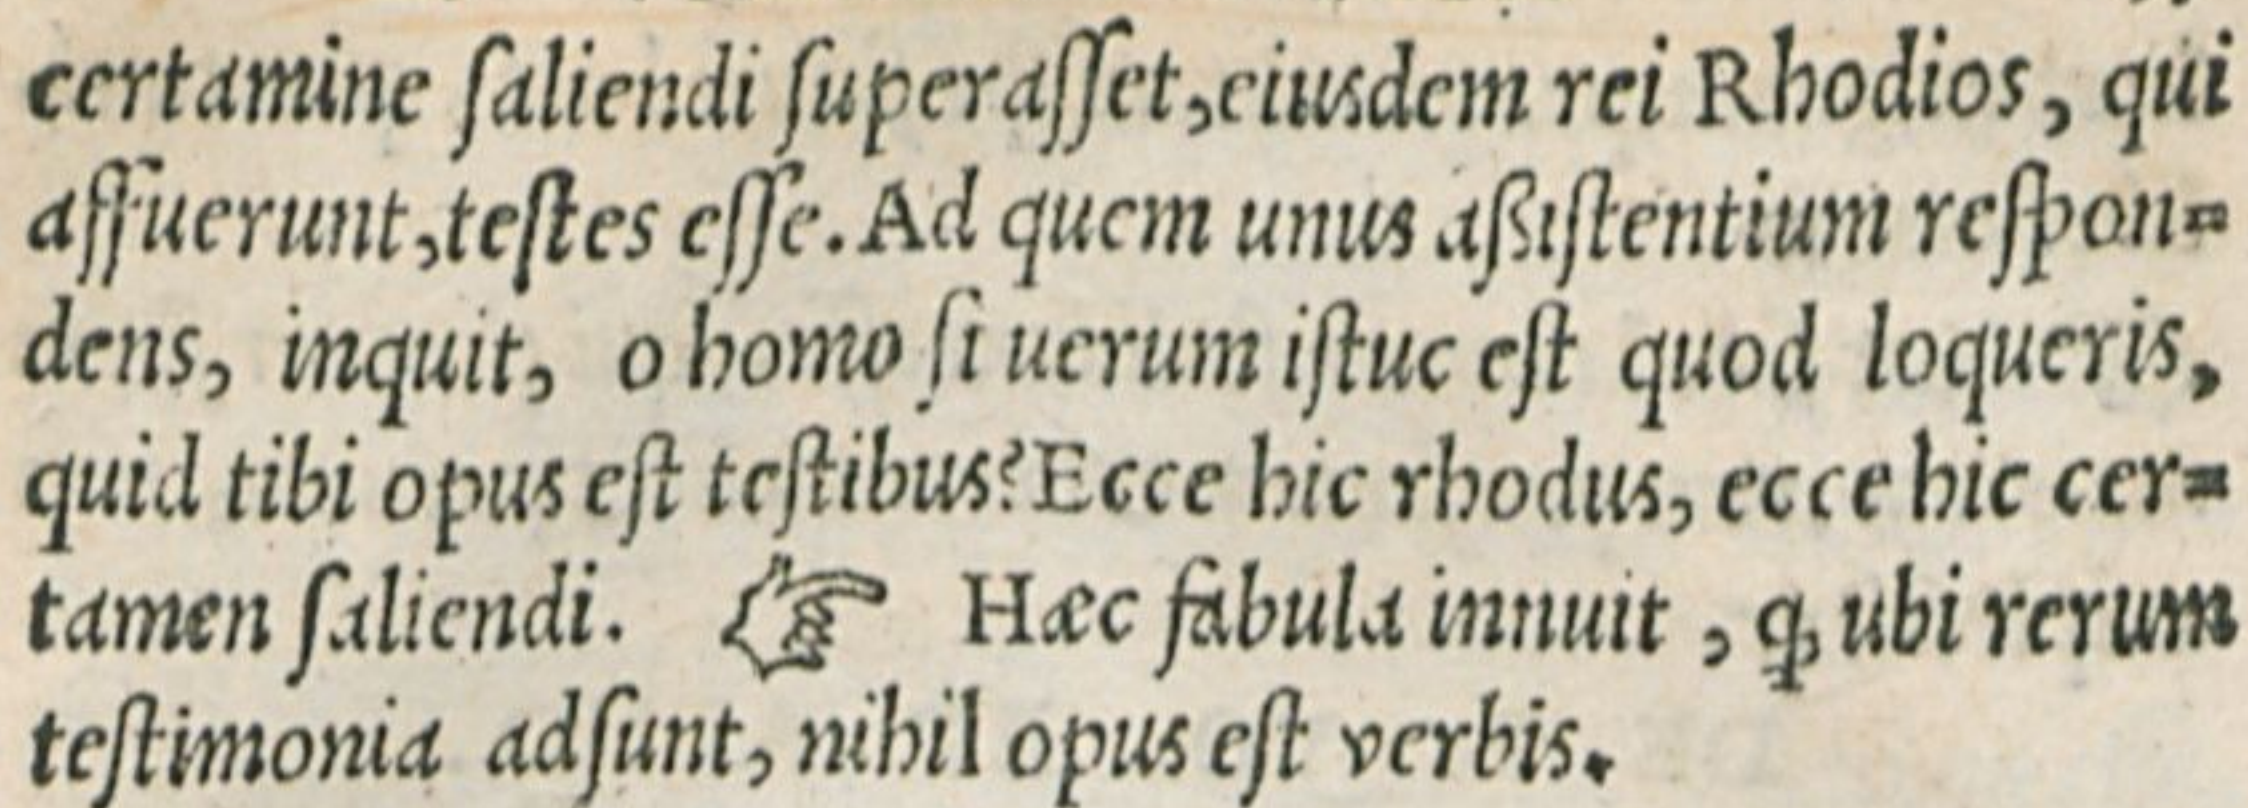 certamine ſaliendi ſuperaſſet, eiusdem rei Rhodios, qui
affuerunt, teſtes eſſe. Ad quem unus aßiſtentium reſpon=
dens, inquit, o homo ſi uerum iſtuc eſt quod loqueris,
quid tibi opus eſt teſtibus? Ecce hic rhodus, ecce hic cer=
tamen ſaliendi. ☞ Hæc fabula innuit, ꝙ ubi rerum
teſtimonia adſunt, nihil opus eſt verbis.